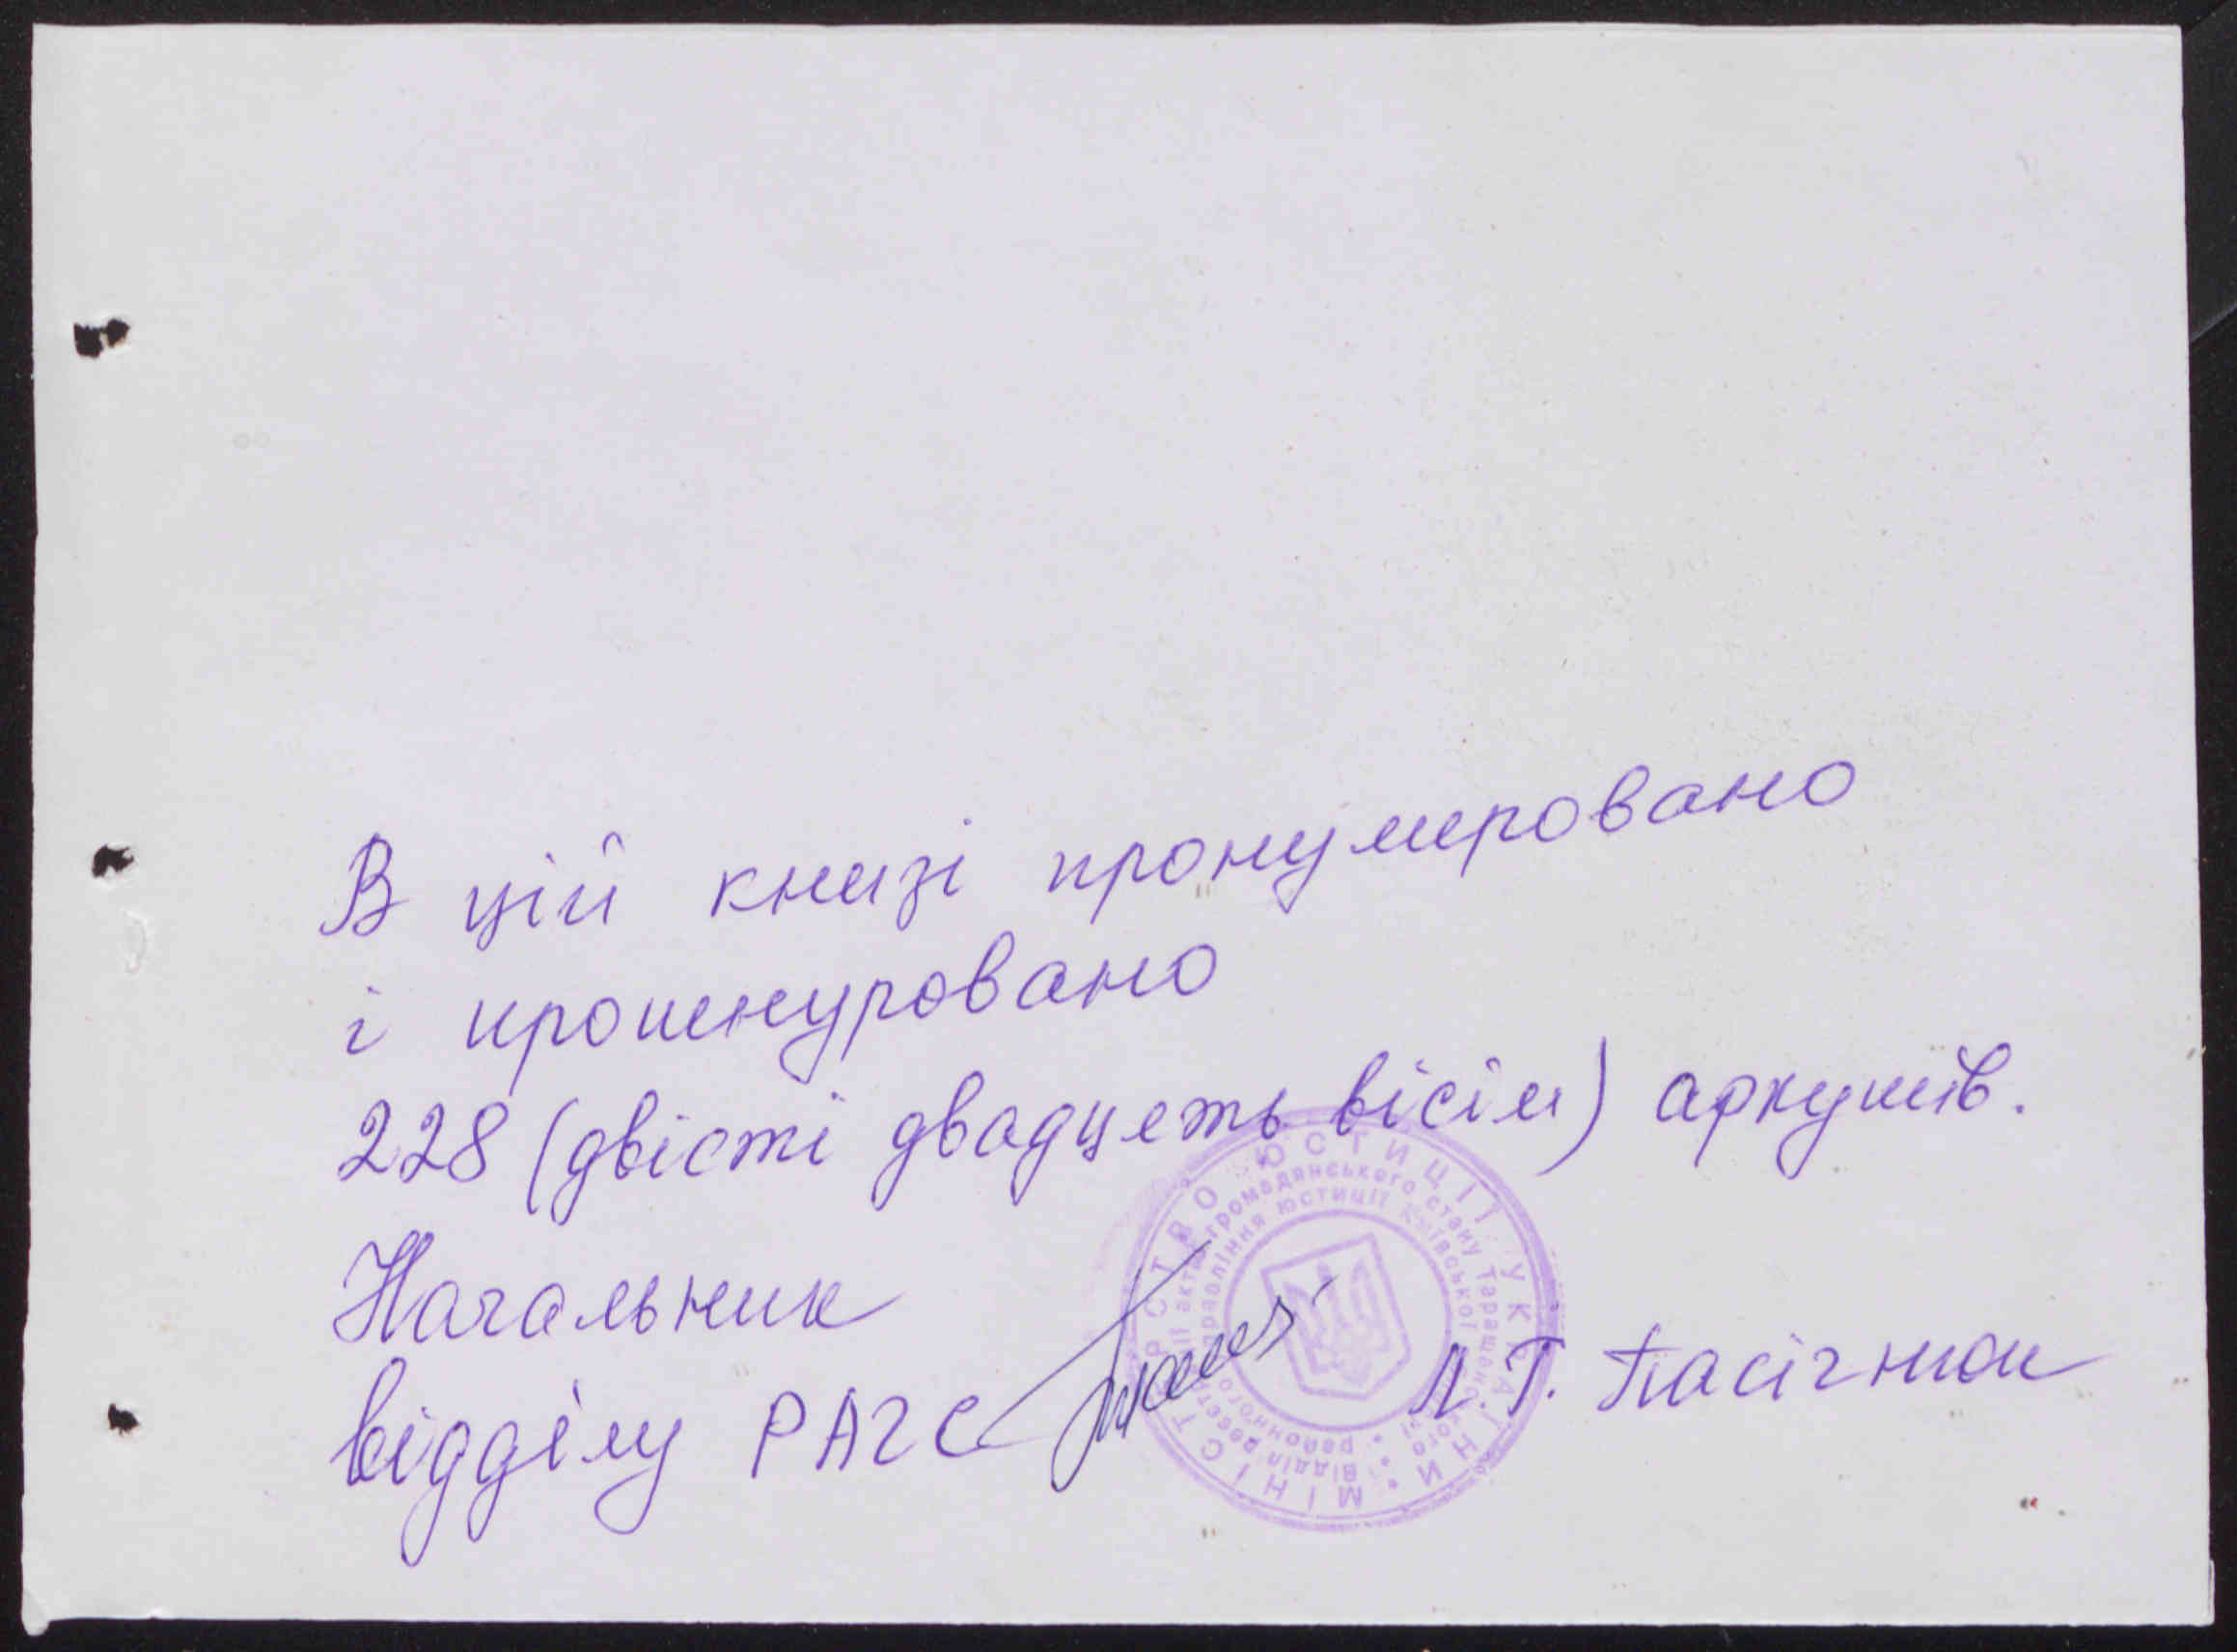 В цій книзі пронумеровано
і прошнуровано
228 (двісті двадцять вісім) аркушів.
Начальник
відділу РАГС Л.Т. Пасічнюк
МІНІСТЕРСТВО ЮСТИЦІЇ УКРАЇНИ
Відділ реєстрації актів громадянського стану Таращанського
районного управління юстиції Київської